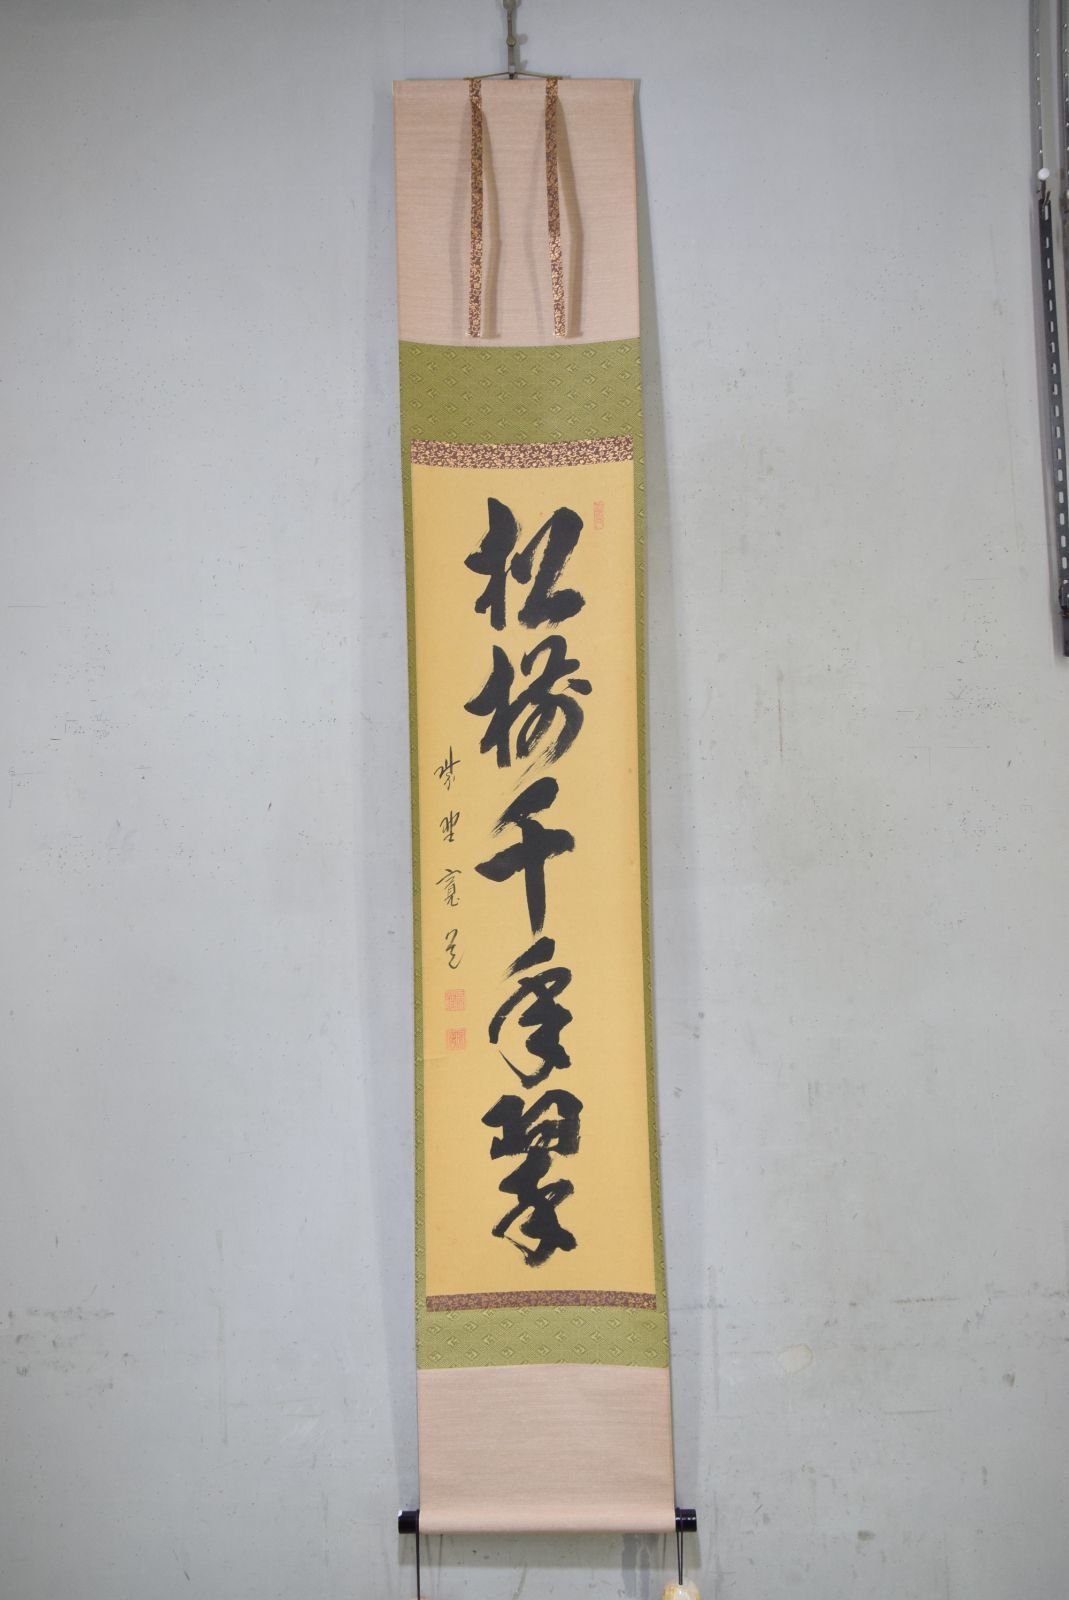 松樹千年翠
紫野寛道